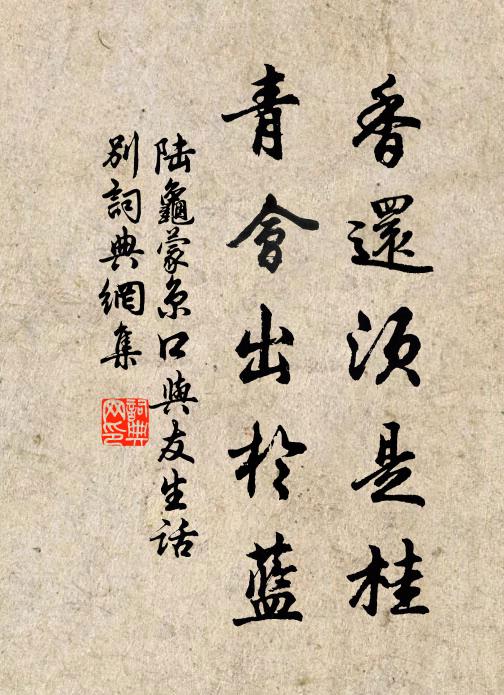 香還須是桂
青會出於藍
陸龜蒙京口與友生話
別詞典網集
詞典
网印